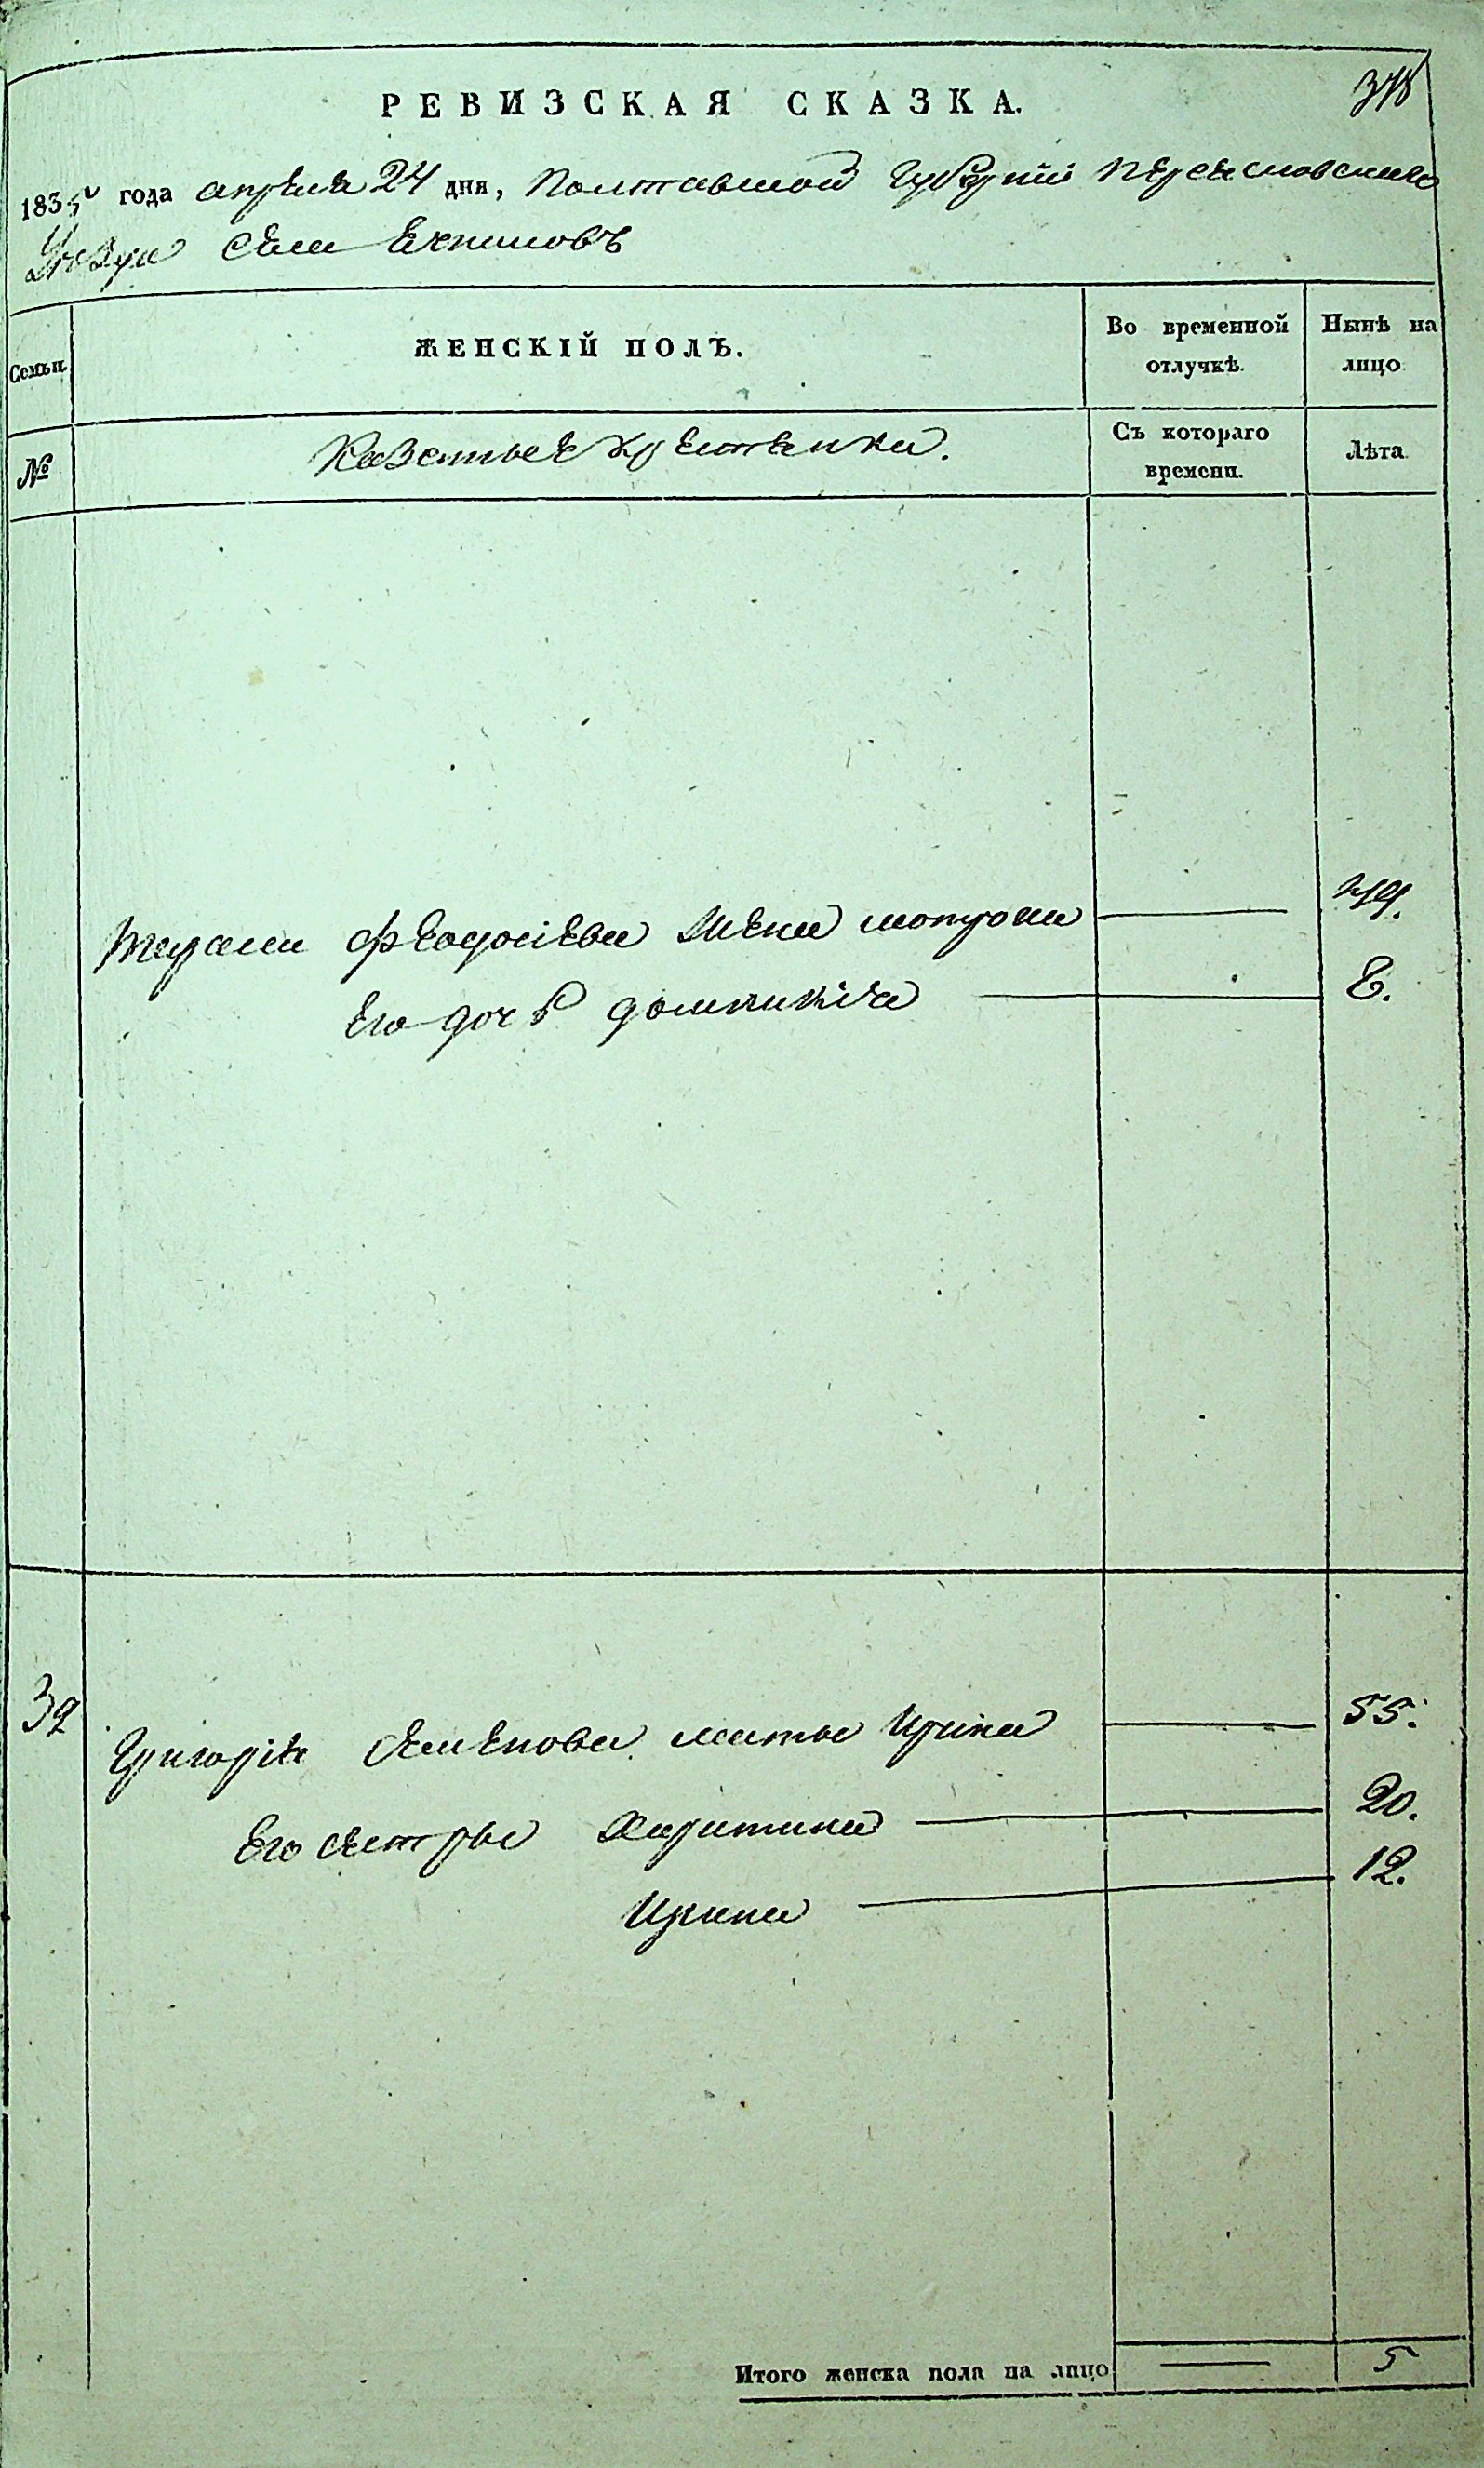 РЕВИЗСКАЯ СКАЗКА.
1835 года апреля 24 дня, Полтавской Губерніи Переясловскаго
Уезда села
Семьи.
ЖЕНСКІЙ ПОЛЪ.
Во временной отлучкѣ.
Нынѣ на лицо.
№
Казенные крестьянки.
Съ котораго времени.
Лѣта.
Герасима Феодосіева жена мотрона
его дочь домникія 8.
32
Григорія Семенова мать Ирина 55.
Его сестры Харитина 20.
Ирина 12.
Итого женска пола на лицо 5